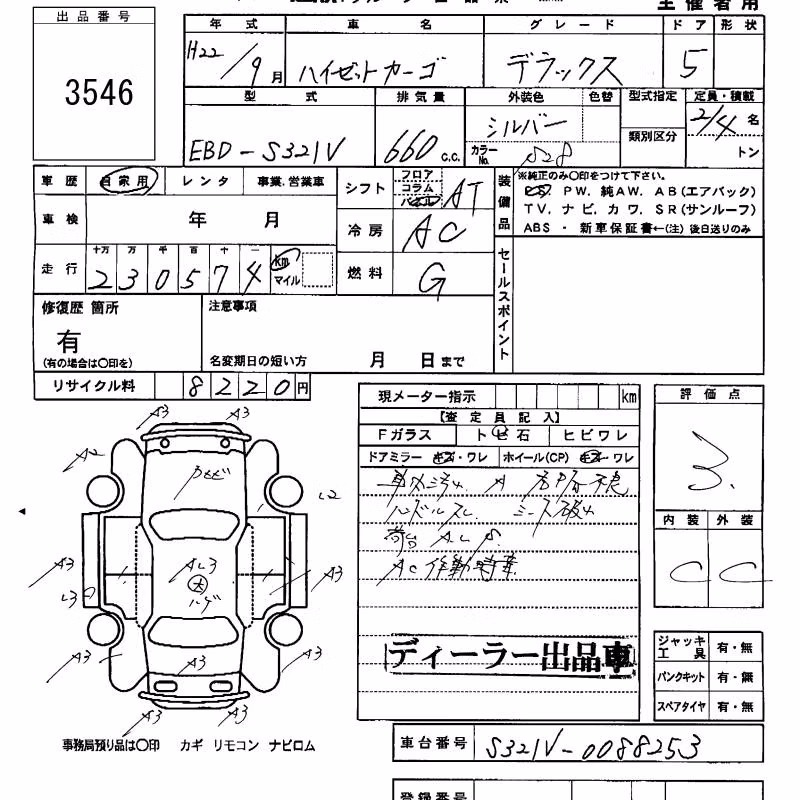 主催者用
出品番号
3546
年式 車名 グレード ドア 形状
H22/9月 ハイゼットカーゴ デラックス 5
型式 排気量 外装色 色替 型式指定 定員・積載
EBD-S321V 660 c.c. シルバー 2/4名
カラーNo. S28 類別区分 トン
車歴 自家用 レンタ 事業,営業車 シフト フロア コラム パネル AT
装備品 ※純正のみ〇印をつけて下さい。
PS, PW, 純AW, AB(エアバック)
TV, ナビ, カワ, SR(サンルーフ)
ABS・新車保証書←(注)後日送りのみ
車検 年 月 冷房 AC
走行 十万 万 千 百 十 一
230574 km マイル 燃料 G
セールスポイント
修復歴 箇所 注意事項
有
(有の場合は〇印を) 名変期日の短い方 月 日まで
リサイクル料 8220円
現メーター指示 km
【査定員記入】
Fガラス トビ石 ヒビワレ
ドアミラー キズ・ワレ ホイール(CP) キズ・ワレ
ハンドルスレ シート破れ
荷台 AL S
AC作動時異
ディーラー出品車
評価点
3.
内装 外装
C C
A3 A3
A2 トビ L2
A3 AL3 A3
L3 大 ハゲ
A3 A3 A3
A3 A3
ジャッキ工具 有・無
パンクキット 有・無
スペアタイヤ 有・無
事務局預り品は〇印 カギ リモコン ナビロム
車台番号 S321V-0088253
登録番号